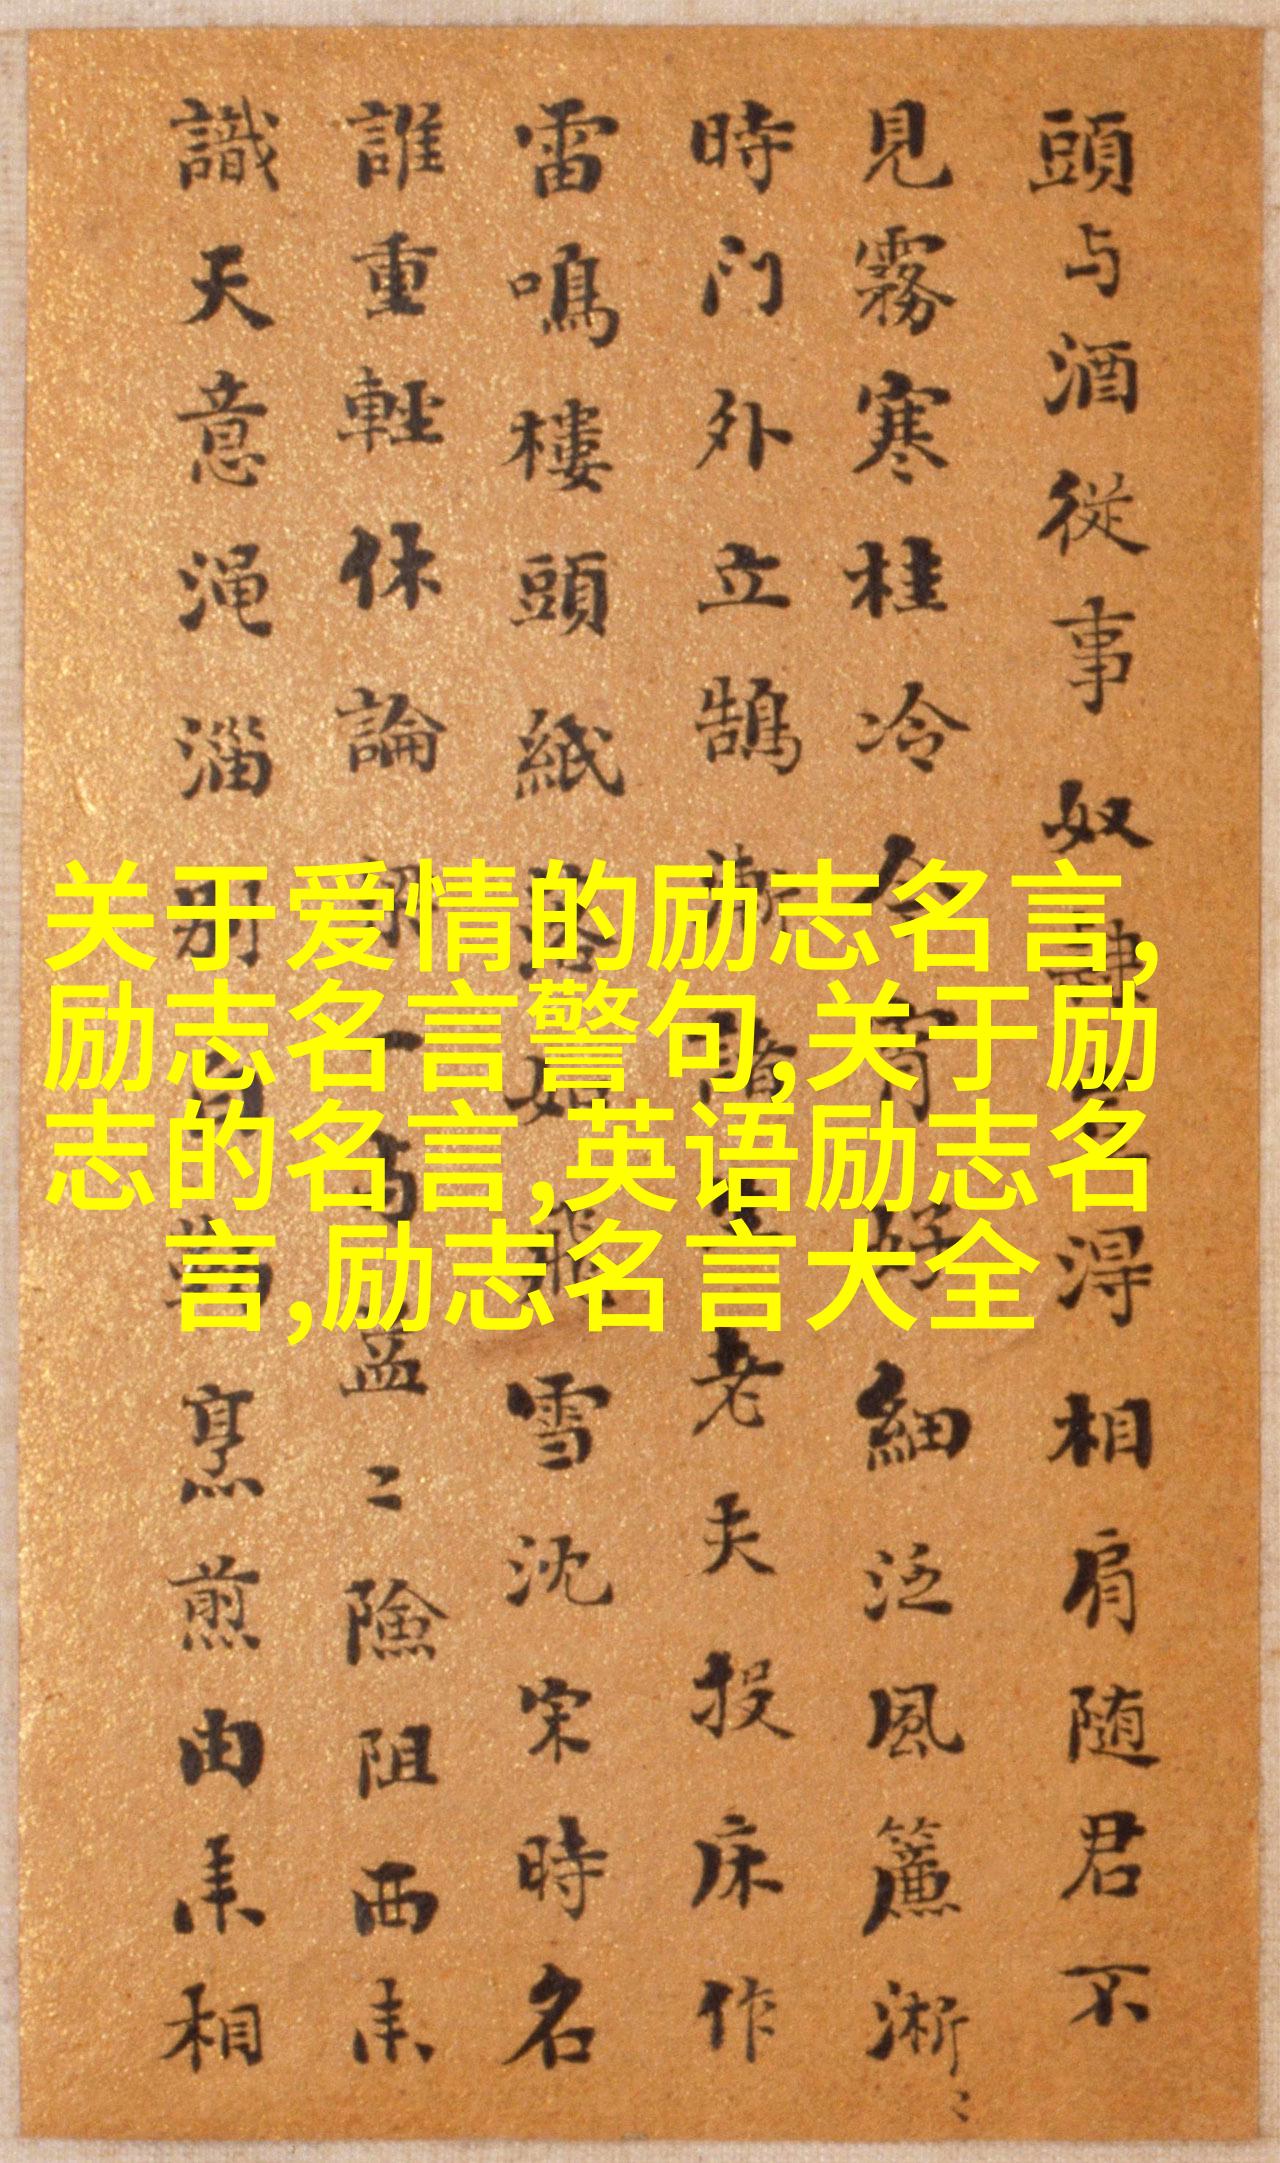 頭与酒從事奴隸
得相肩随君不
見霧寒桂冷
好細泛風簾淅〻
時门外立鵠
老夫投床作
雷鳴樓頭紙
雪沈宋時名
誰重輕休論
孟〻險阻西来
識天意渑淄别
烹煎由来相
关于爱情的励志名言,
励志名言警句,关于励
志的名言,英语励志名
言,励志名言大全